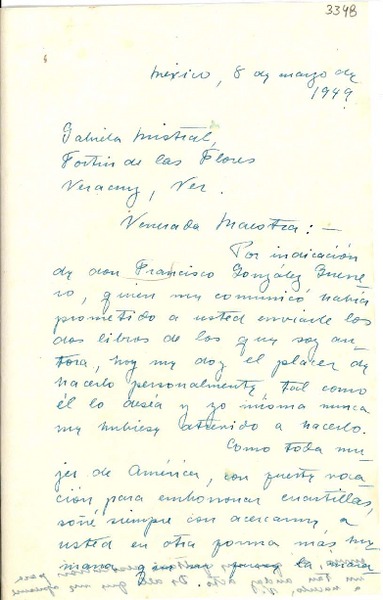 3348
México, 8 de marzo de
1949
Gabriela Mistral,
Fortín de las Flores
Veracruz, Ver.
Venerada Maestra:-
Por indicación
de don Francisco González Guerre-
ro, quien me comunicó había
prometido a usted enviarle los
dos libros de los que soy au-
tora, hoy me doy el placer de
hacerlo personalmente, tal como
él lo deseía y yo misma nunca
me hubiese atrevido a hacerlo.
Como toda mu-
jer de América, con puesta voca-
ción para emborronar cuartillas,
soñé siempre con acercarme a
usted en otra forma más hu-
mana